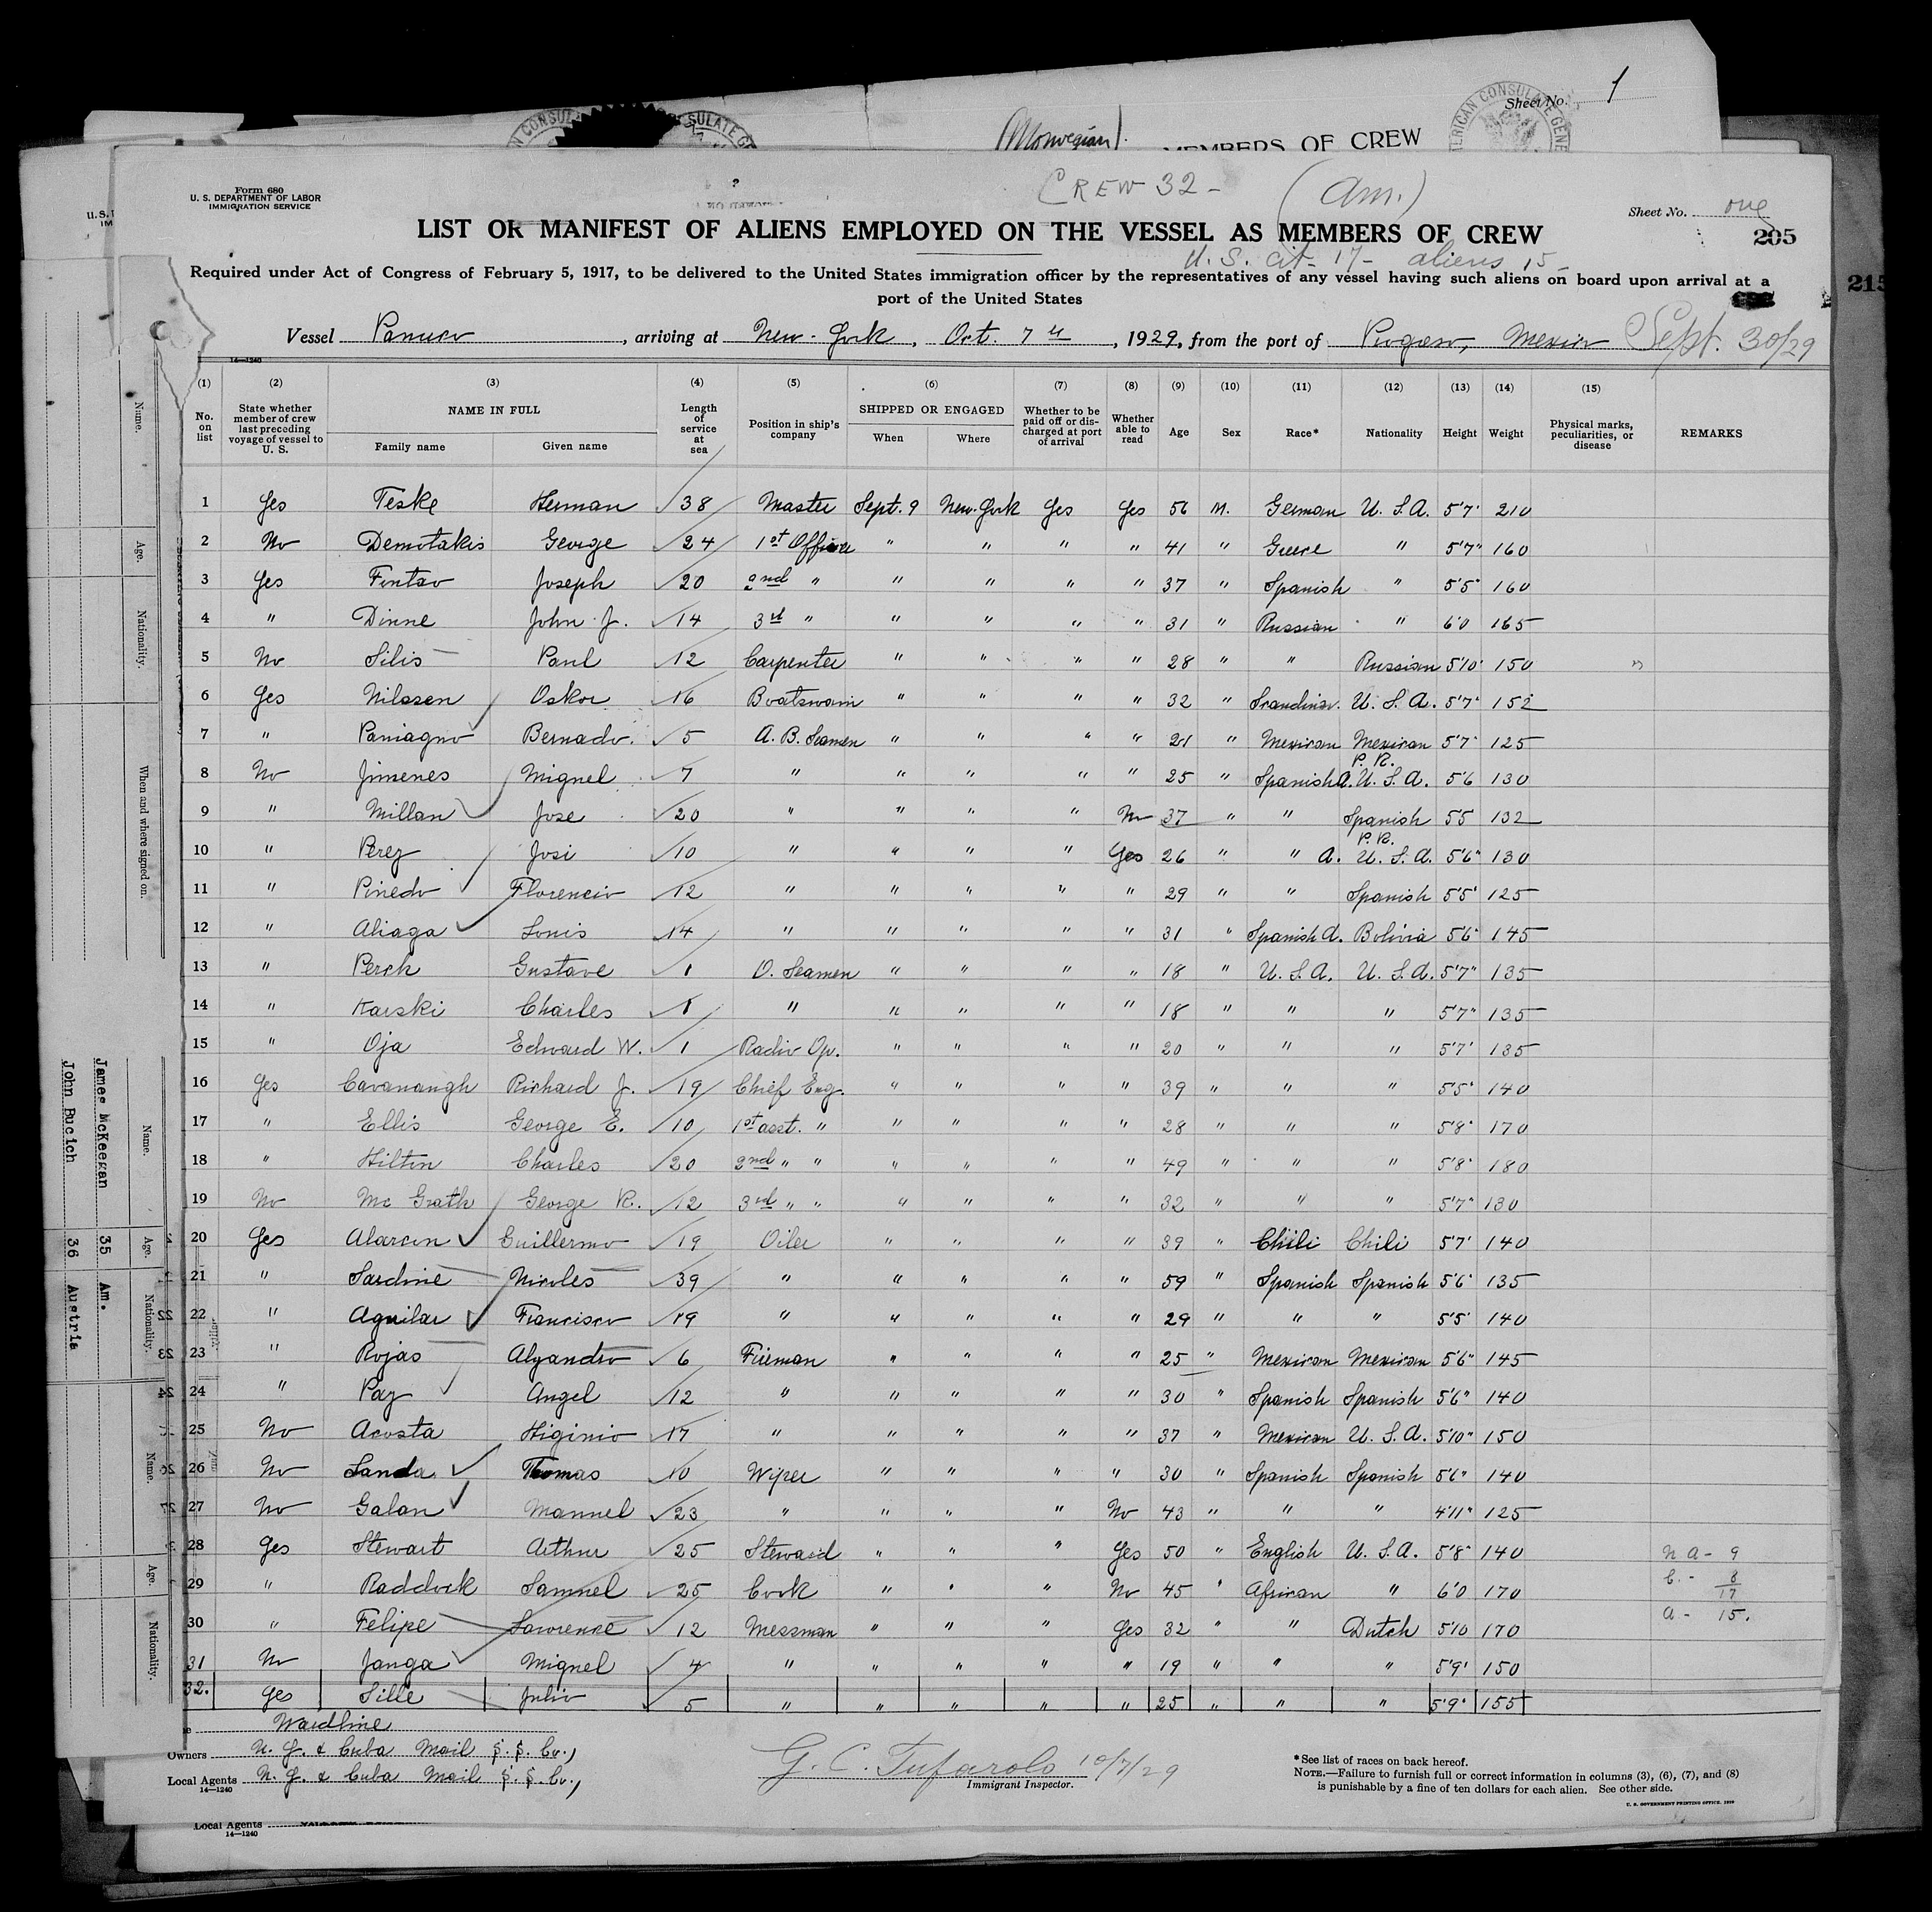 Sheet No. 1
(Norwegian).
MEMBERS OF CREW
Form 680
U. S. DEPARTMENT OF LABOR
IMMIGRATION SERVICE
CREW 32 - (Am.)
Sheet No. one
205
LIST OR MANIFEST OF ALIENS EMPLOYED ON THE VESSEL AS MEMBERS OF CREW
U. S. Cit- 17- aliens 15-
Required under Act of Congress of February 5, 1917, to be delivered to the United States immigration officer by the representatives of any vessel having such aliens on board upon arrival at a
port of the United States
215
Vessel Panuco, arriving at New-York, Oct. 7th, 1929, from the port of Progreso, Mexico Sept. 30/29
14—1240
(1) (2) (3) (4) (5) (6) (7) (8) (9) (10) (11) (12) (13) (14) (15)
No. on list State whether member of crew last preceding voyage of vessel to U. S. NAME IN FULL Family name Given name Length of service at sea Position in ship's company SHIPPED OR ENGAGED When Where Whether to be paid off or discharged at port of arrival Whether able to read Age Sex Race* Nationality Height Weight Physical marks, peculiarities, or disease REMARKS
1 Yes Teske Herman 38 Master Sept. 9 New-York Yes Yes 56 M. German U. S. A. 5'7" 210
2 No Demotakis George 24 1st Officer " " " " 41 " Greece " 5'7" 160
3 Yes Joseph 20 2nd " " " " " 37 " Spanish " 5'5" 160
4 " Dinne John J. 14 3rd " " " " " 31 " Russian " 6'0 165
5 No Silis Paul 12 Carpenter " " " " 28 " " Russian 5'10" 150
6 Yes Nilssen Oskar 16 Boatswain " " " " 32 " Scandinav. U. S. A. 5'7" 152
7 " Paniagno Bernado. 5 A. B. Seamen " " " " 21 " Mexican Mexican 5'7" 125
8 No Jimenes Miguel 7 " " " " " 25 " Spanish A. P. R. U. S. A. 5'6 130
9 " Millan Jose 20 " " " " No 37 " " Spanish 5'5 132
10 " Perez Josi 10 " " " " Yes 26 " " A. P. R. U. S. A. 5'6" 130
11 " Pinedo Florencio 12 " " " " " 29 " " Spanish 5'5" 125
12 " Aliaga Louis 14 " " " " " 31 " Spanish A. Bolivia 5'6" 145
13 " Perch Gustave 1 O. Seamen " " " " 18 " U. S. A. U. S. A. 5'7" 135
14 " Karski Charles 1 " " " " " 18 " " " 5'7" 135
15 " Oja Edward W. 1 Radio Op. " " " " 20 " " " 5'7" 135
16 Yes Cavanaugh Richard J. 19 Chief Eng. " " " " 39 " " " 5'5" 140
17 " Ellis George E. 10 1st asst. " " " " " 28 " " " 5'8" 170
18 " Hilton Charles 20 2nd " " " " " " 49 " " " 5'8" 180
19 No Mc Grath George R. 12 3rd " " " " " " 32 " " " 5'7" 130
20 Yes Alarcon Guillermo 19 Oiler " " " " 39 " Chili Chili 5'7" 140
21 " Sardine Nicoles 39 " " " " " 59 " Spanish Spanish 5'6" 135
22 " Aguilar Francisco 19 " " " " " 29 " " " 5'5" 140
23 " Rojas Alyandro 6 Fireman " " " " 25 " Mexican Mexican 5'6" 145
24 " Paz Angel 12 " " " " " 30 " Spanish Spanish 5'6" 140
25 No Acosta Higinio 17 " " " " " 37 " Mexican U. S. A. 5'10" 150
26 No Landa Thomas 10 Wiper " " " " 30 " Spanish Spanish 5'6" 140
27 No Galan Manuel 23 " " " " No 43 " " " 4'11" 125
28 Yes Stewart Arthur 25 Steward " " " Yes 50 " English U. S. A. 5'8" 140 N A - 9
29 " Raddock Samuel 25 Cook " " " No 45 " African " 6'0 170 C. - 8
17
30 " Felipe Lawrence 12 Messman " " " Yes 32 " " Dutch 5'10 170 A - 15.
31 No Janga Miguel 4 " " " " " 19 " " " 5'9" 150
32. Yes Sille Julio 5 " " " " " 25 " " " 5'9" 155
Wardline
Owners N. Y. & Cuba Mail S. S. Co.,
Local Agents N. Y. & Cuba Mail S. S. Co.,
14—1240
G. C. Tufarolo 10/7/29
Immigrant Inspector.
*See list of races on back hereof.
NOTE.—Failure to furnish full or correct information in columns (3), (6), (7), and (8)
is punishable by a fine of ten dollars for each alien. See other side.
U. S. GOVERNMENT PRINTING OFFICE
Local Agents
14—1240
Name.
Age.
Nationality.
When and where signed on.
Name.
Age.
Nationality.
Name.
Age.
Nationality.
James McKeegan 35 Am.
John Bucich 36 Austria